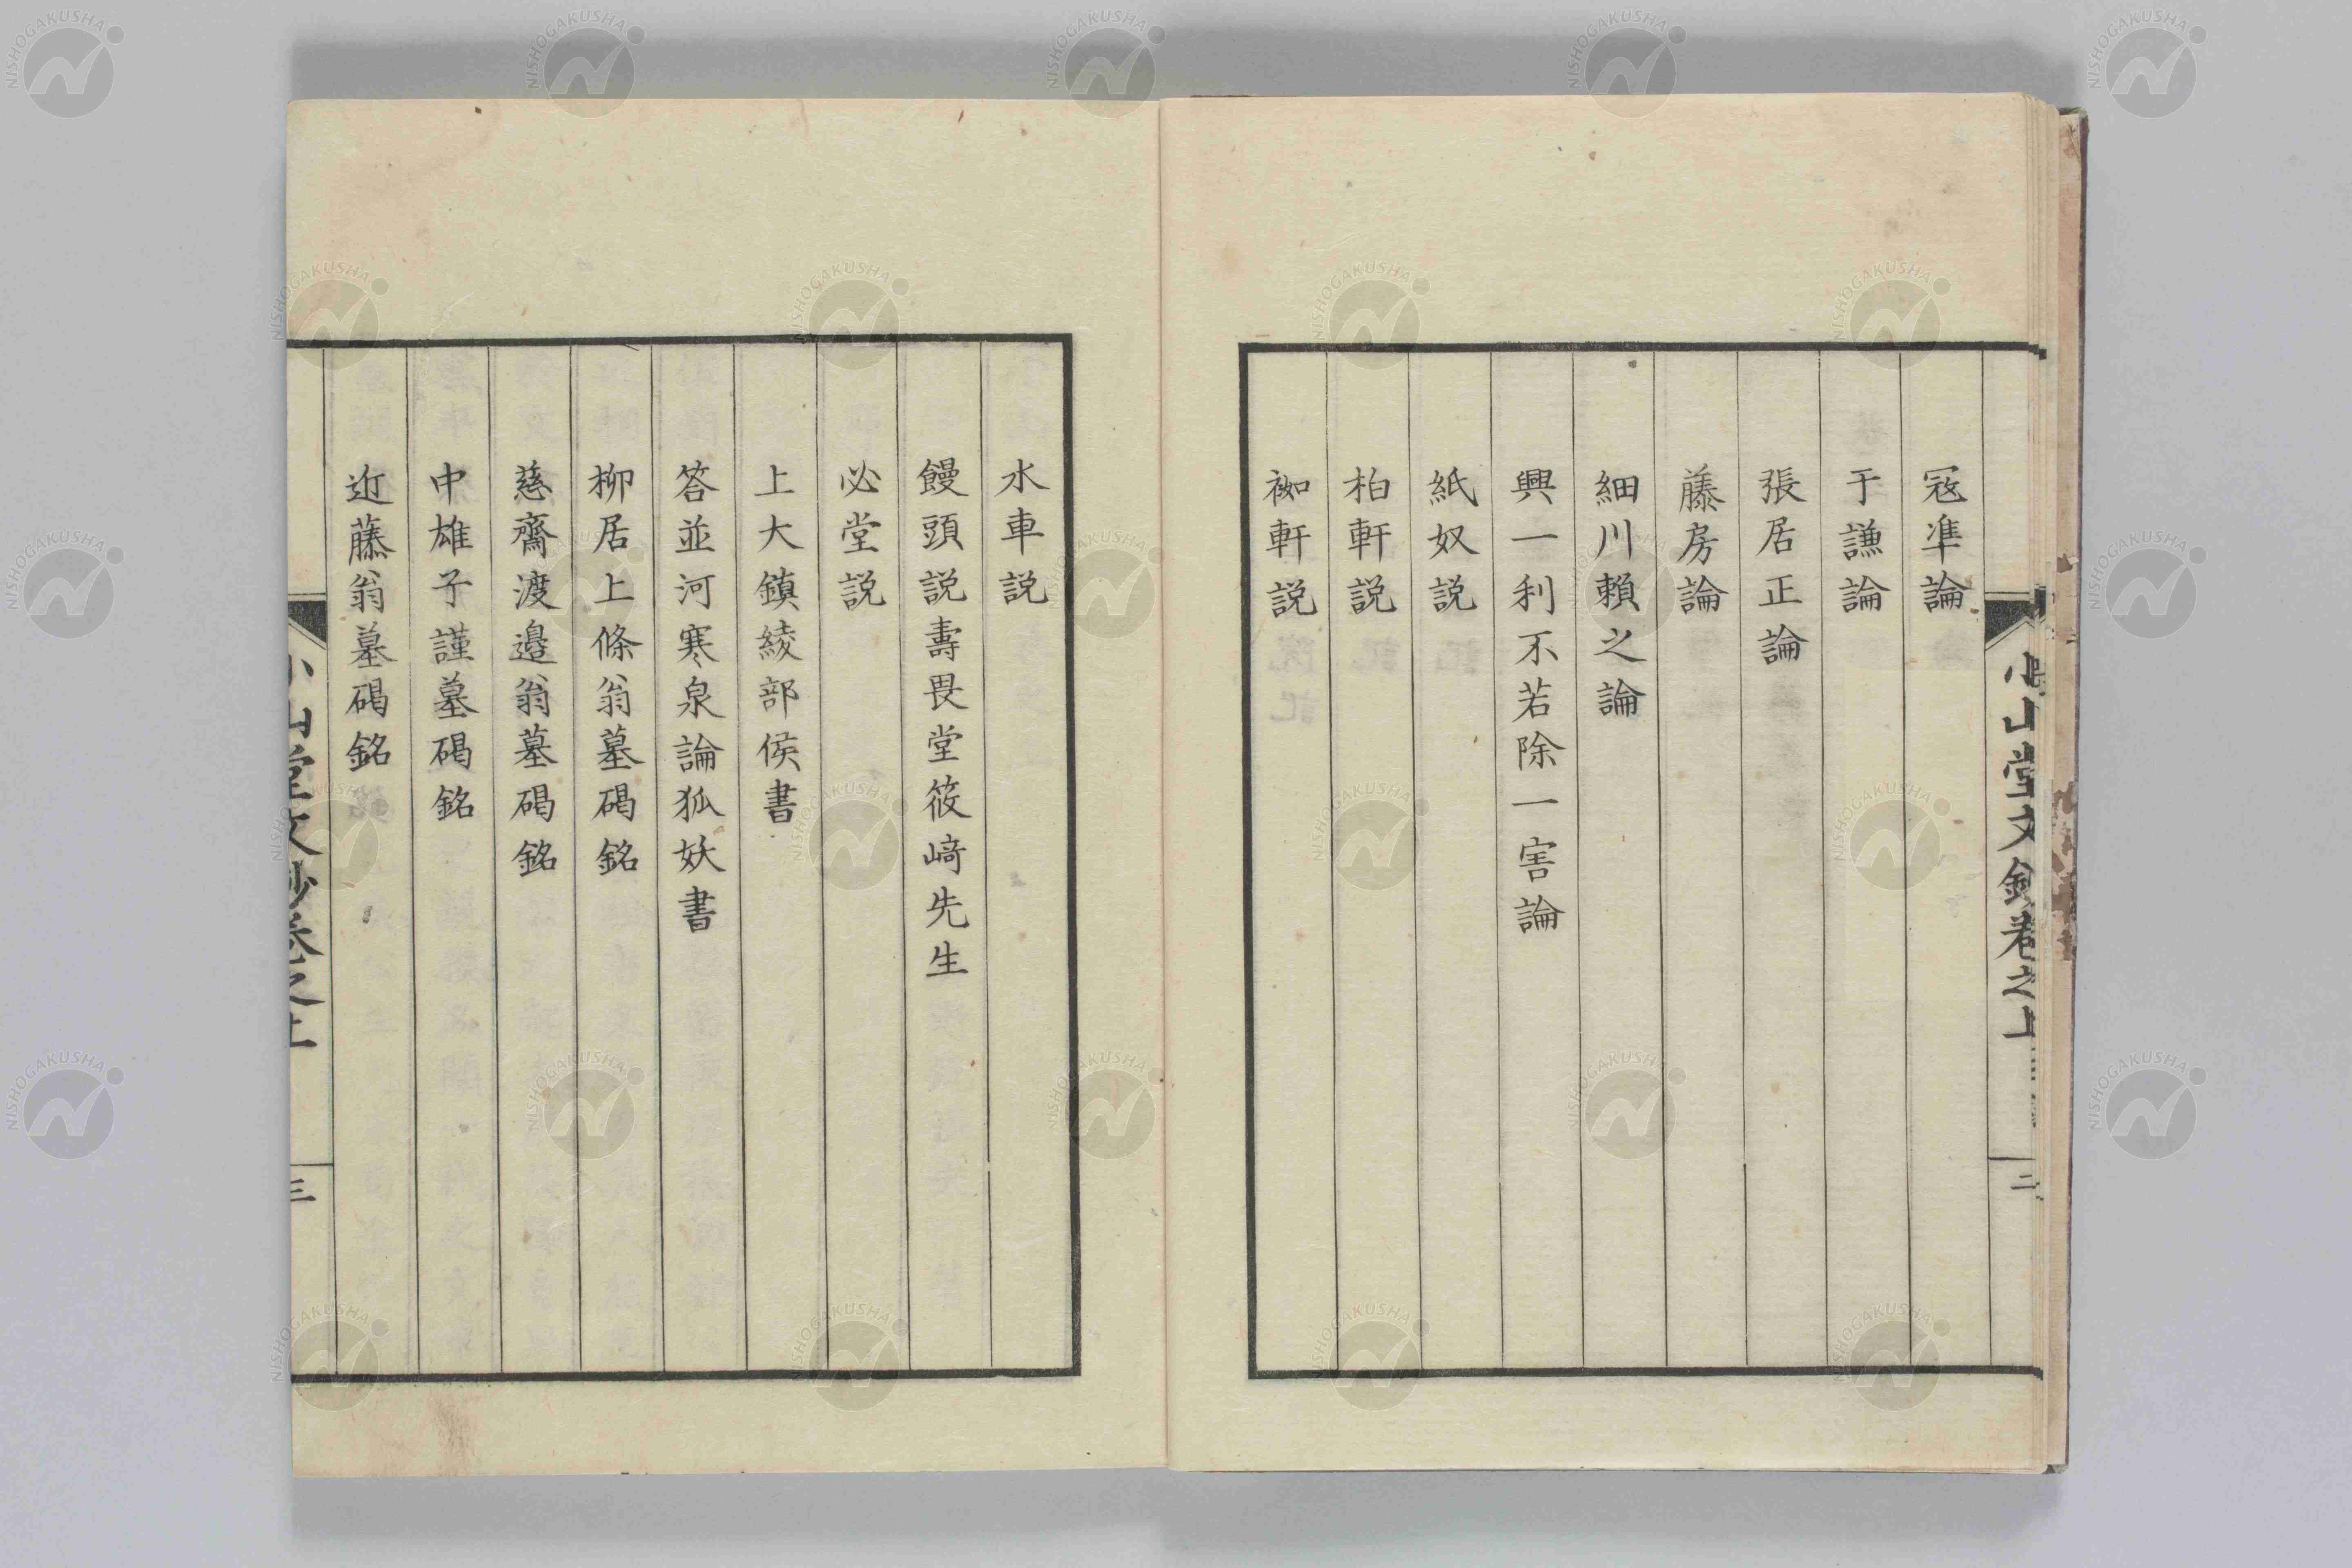 小山堂文鈔卷之上
二
冦凖論
于謙論
張居正論
藤房論
細川頼之論
興一利不若除一害論
紙奴説
柏軒説
袽軒説
水車説
饅頭説壽畏堂筱﨑先生
必堂説
上大鎮綾部侯書
答並河寒泉論狐妖書
柳居上條翁墓碣銘
慈齋渡邉翁墓碣銘
中雄子謹墓碣銘
近藤翁墓碣銘
小山堂文鈔卷之上
三
NISHOGAKUSHA